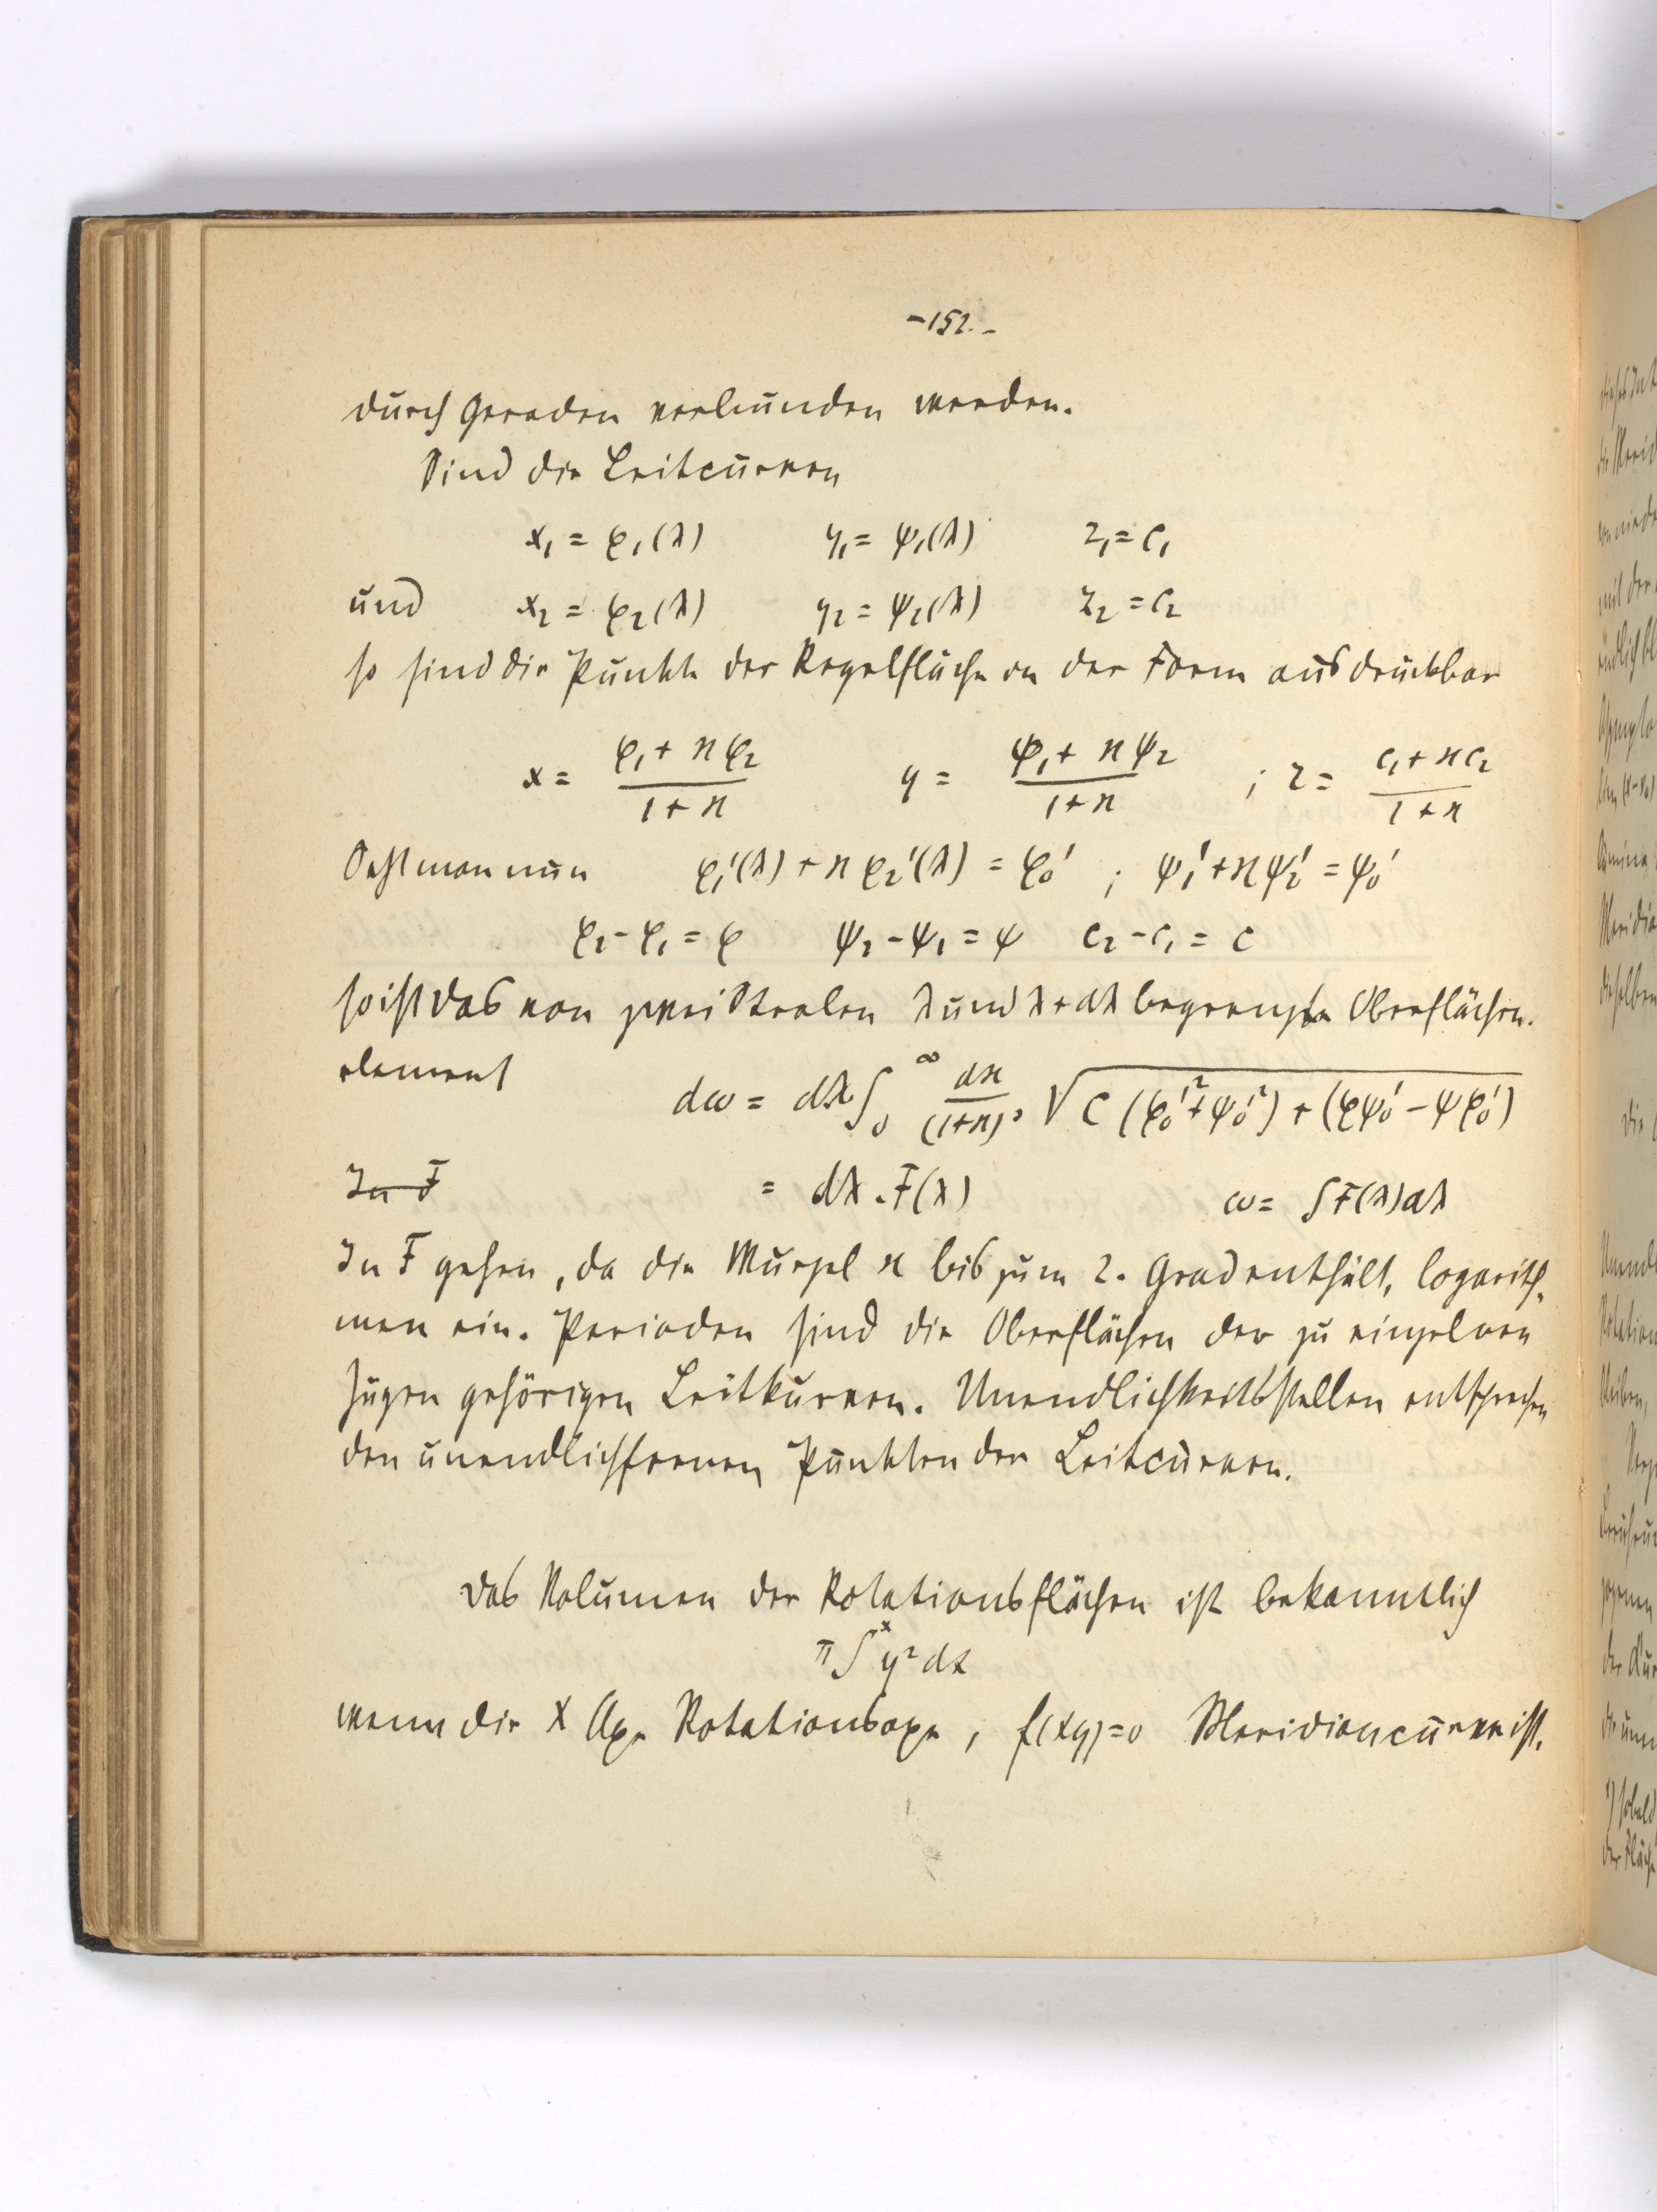 -152.-
durch Geraden verbunden werden.
Sind die Leitcurven
x₁ = φ₁(λ) y₁ = ψ₁(λ) z₁ = c₁
und x₂ = φ₂(λ) y₂ = ψ₂(λ) z₂ = c₂
so sind die Punkte der Regelfläche in der Form ausdrückbar
x = (φ₁ + ϰφ₂)/(1+ϰ) y = (ψ₁ + ϰψ₂)/(1+ϰ) ; z = (c₁ + ϰc₂)/(1+ϰ)
Setzt man nun φ₁'(λ) + ϰφ₂'(λ) = φ₀' ; ψ₁' + ϰψ₂' = ψ₀'
φ₂ - φ₁ = φ ψ₂ - ψ₁ = ψ c₂ - c₁ = c
so ist das von zwei Stralen λ und λ+dλ begrenzte Oberflächen-
element
dω = dλ ∫₀^∞ dϰ/(1+ϰ)³ √(c(φ₀'² + ψ₀'²) + (φψ₀' - ψφ₀'))
In F = dλ . F(λ) ω = ∫F(λ)dλ
In F gehen, da die Wurzel ϰ bis zum 2. Grad enthält, Logarith-
men ein. Perioden sind die Oberflächen der zu einzelnen
Zügen gehörigen Leitkurven. Unendlichkeitsstellen entsprechen
den unendlichfernen Punkten der Leitcurven.
Das Volumen der Rotationsflächen ist bekanntlich
π∫^x y²dx
wenn die X Axe Rotationsaxe, f(xy)=0 Meridiancurve ist.